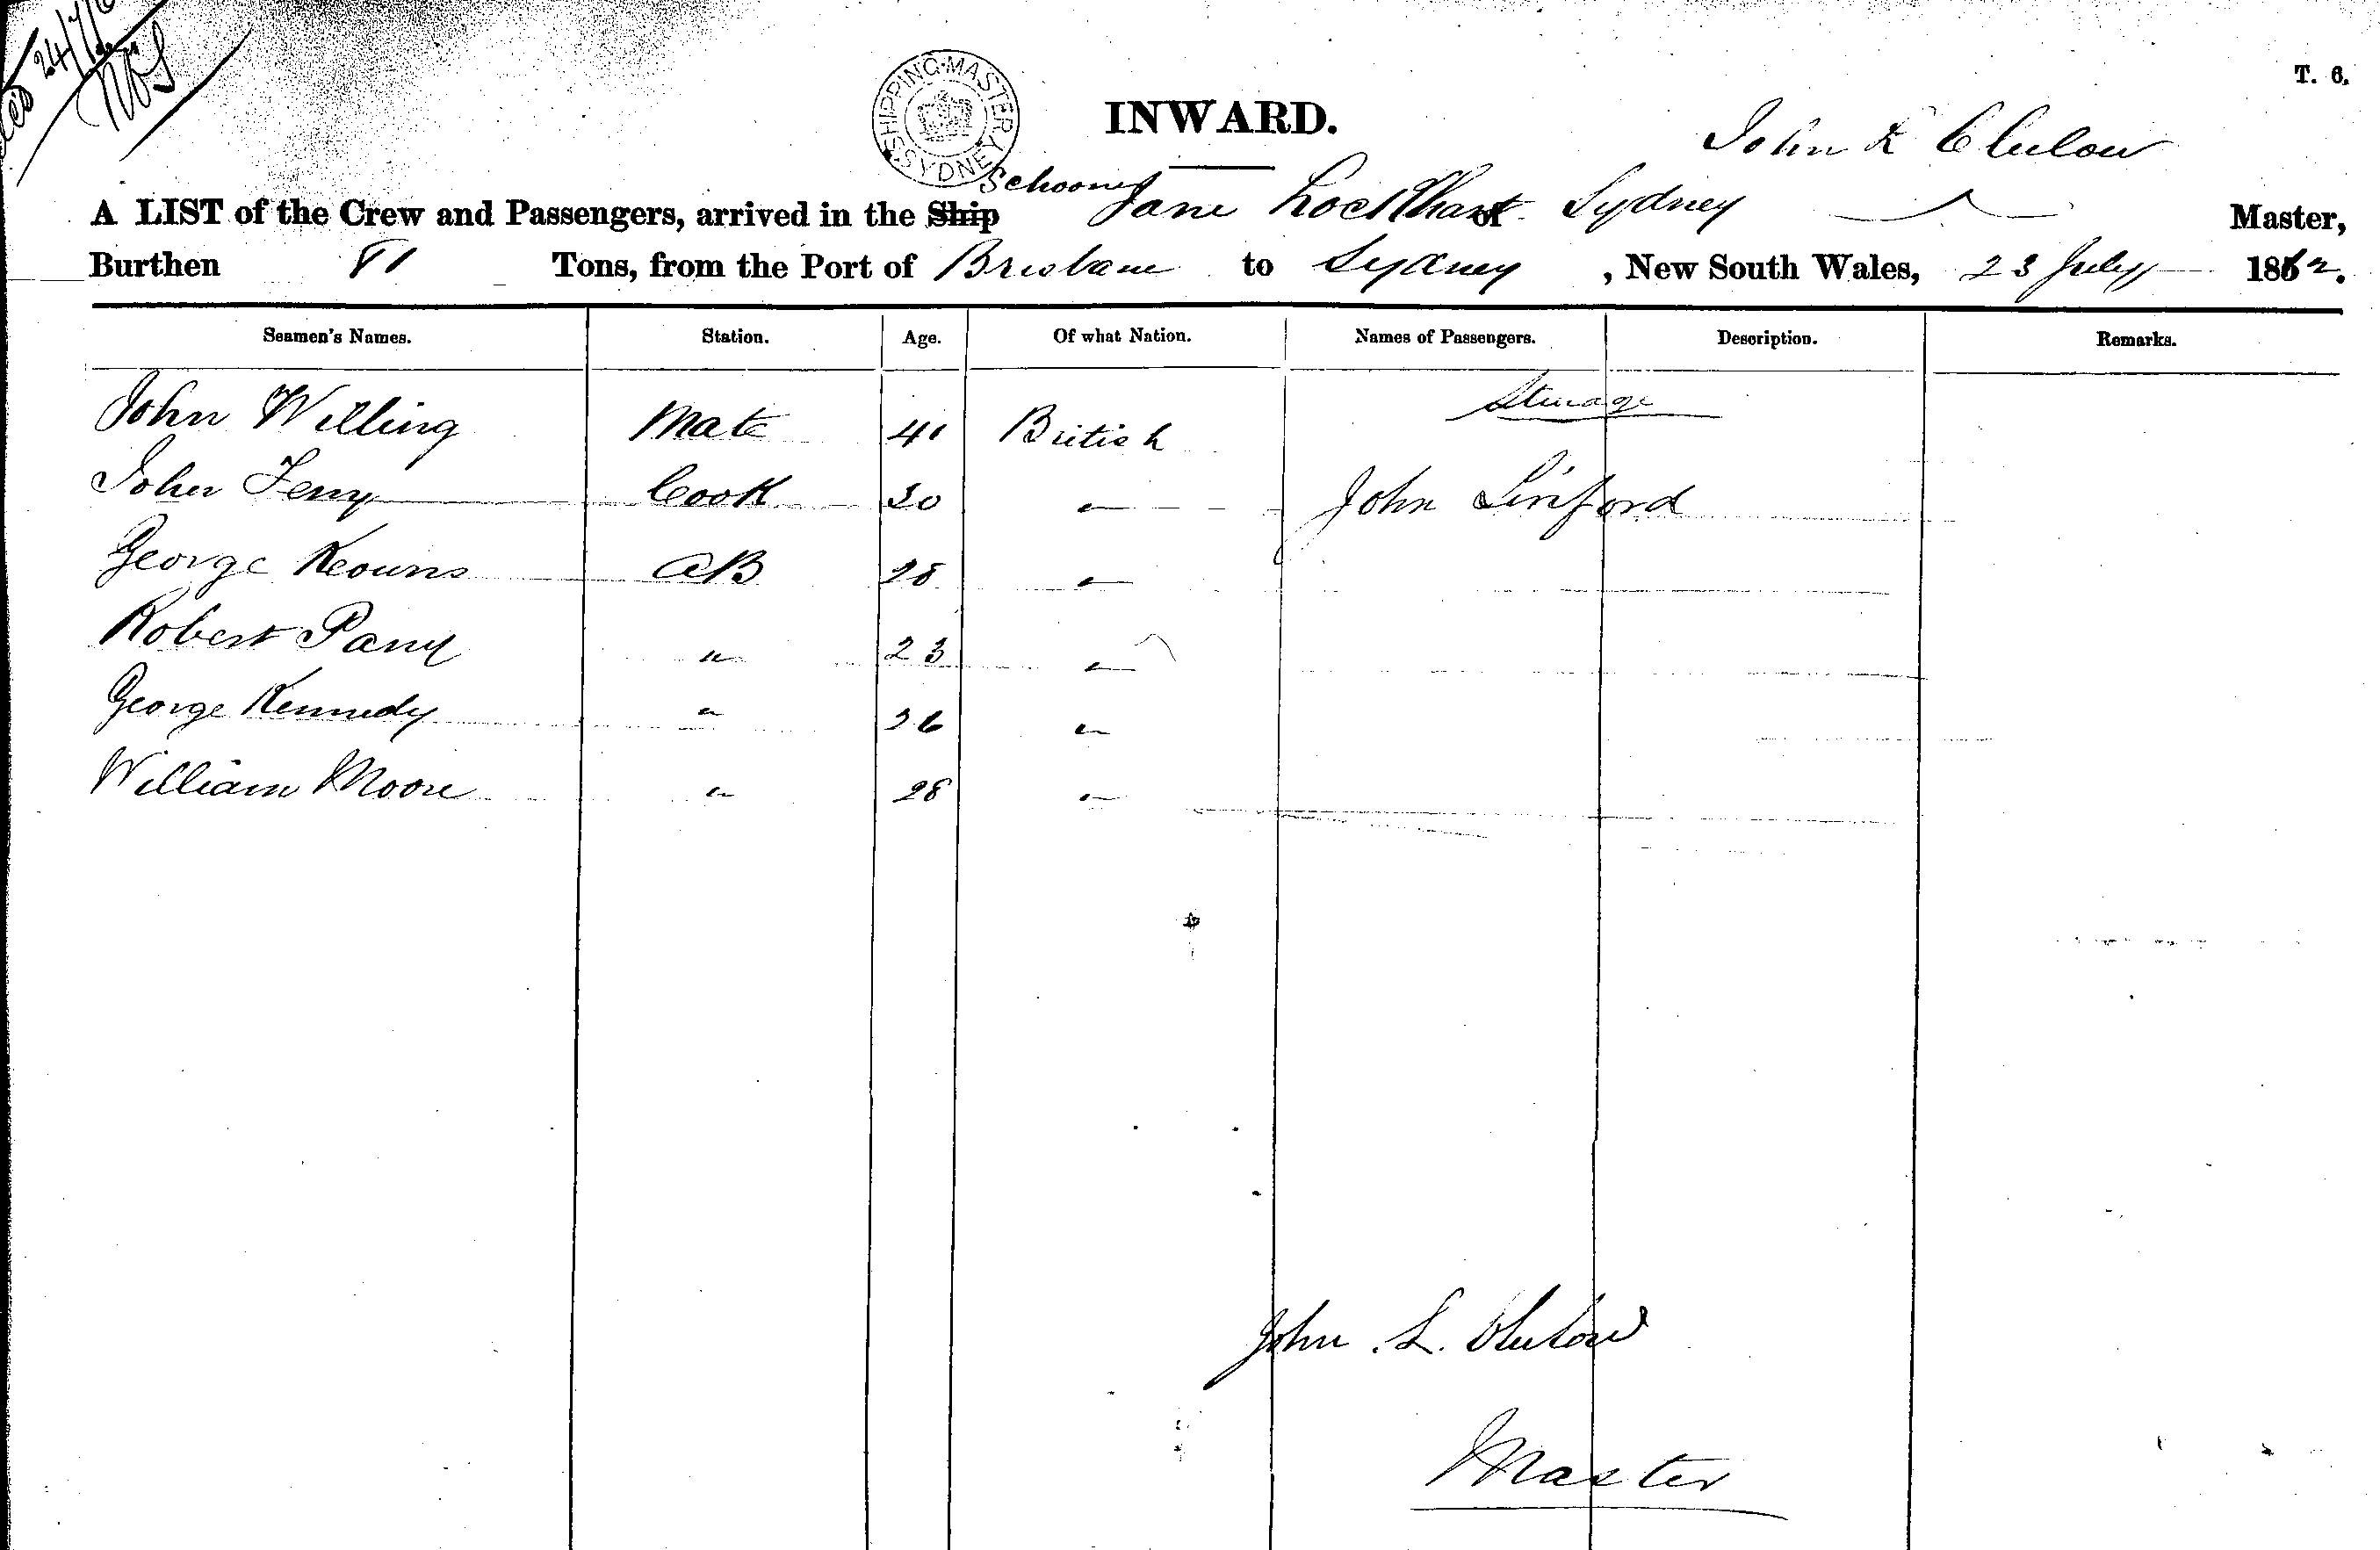 24/7/6
T. 6.
SHIPPING·MASTER SYDNEY
INWARD.
John L Clulow
A LIST of the Crew and Passengers, arrived in the Ship Schooner Jane Lockhart of Sydney Master,
Burthen 81 Tons, from the Port of Brisbane to Sydney, New South Wales, 23 July 1862.
Seamen's Names. Station. Age. Of what Nation. Names of Passengers. Description. Remarks.
Steerage
John Willing Mate 41 British
John Ferry Cook 30 " John Linford
George Keowns AB 28 "
Robert " 23 "
George Kennedy " 26 "
William Moore " 28 "
John . L. Clulow
Master